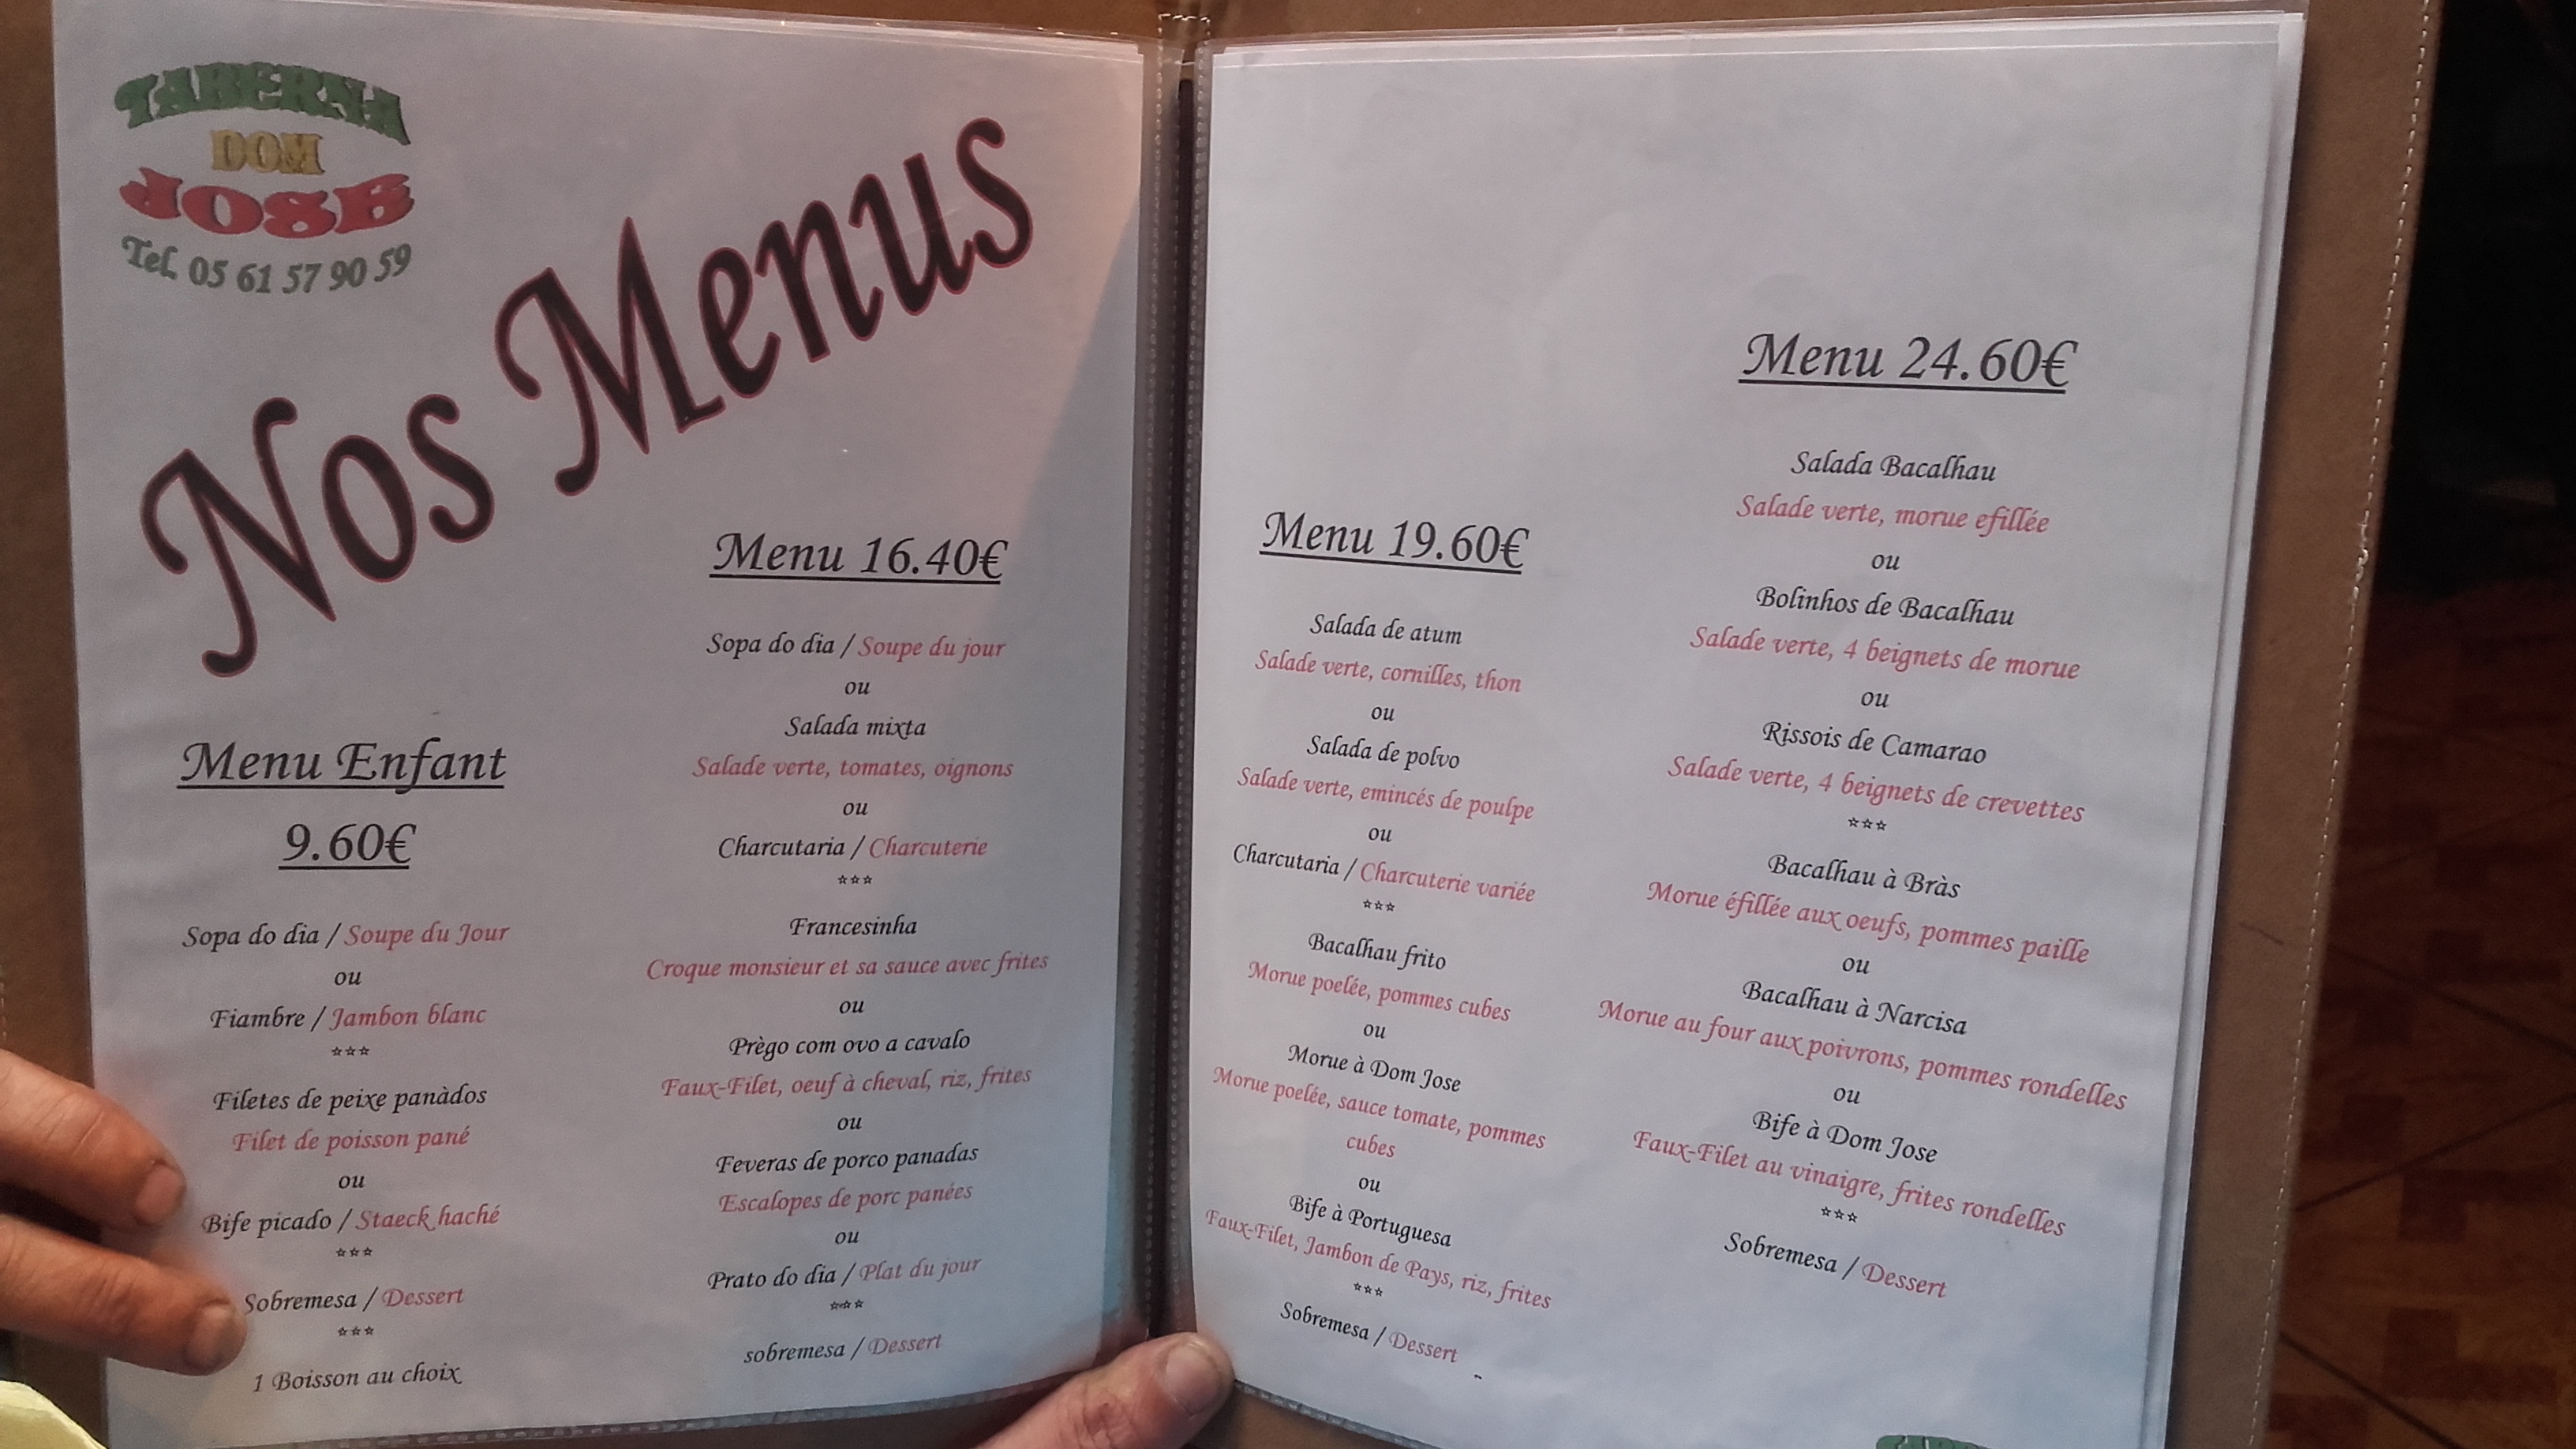 TABERNA
DOM
JOSE
Tel. 05 61 57 90 59
Nos Menus
Menu Enfant
9.60€
Sopa do dia / Soupe du Jour
ou
Fiambre / Jambon blanc
***
Filetes de peixe panàdos
Filet de poisson pané
ou
Bife picado / Staeck haché
***
Sobremesa / Dessert
***
1 Boisson au choix
Menu 16.40€
Sopa do dia / Soupe du jour
ou
Salada mixta
Salade verte, tomates, oignons
ou
Charcutaria / Charcuterie
***
Francesinha
Croque monsieur et sa sauce avec frites
ou
Prègo com ovo a cavalo
Faux-Filet, oeuf à cheval, riz, frites
ou
Feveras de porco panadas
Escalopes de porc panées
ou
Prato do dia / Plat du jour
***
sobremesa / Dessert
Menu 19.60€
Salada de atum
Salade verte, cornilles, thon
ou
Salada de polvo
Salade verte, emincés de poulpe
ou
Charcutaria / Charcuterie variée
***
Bacalhau frito
Morue poelée, pommes cubes
ou
Morue à Dom Jose
Morue poelée, sauce tomate, pommes
cubes
ou
Bife à Portuguesa
Faux-Filet, Jambon de Pays, riz, frites
***
Sobremesa / Dessert
Menu 24.60€
Salada Bacalhau
Salade verte, morue efillée
ou
Bolinhos de Bacalhau
Salade verte, 4 beignets de morue
ou
Rissois de Camarao
Salade verte, 4 beignets de crevettes
***
Bacalhau à Bràs
Morue éfillée aux oeufs, pommes paille
ou
Bacalhau à Narcisa
Morue au four aux poivrons, pommes rondelles
ou
Bife à Dom Jose
Faux-Filet au vinaigre, frites rondelles
***
Sobremesa / Dessert